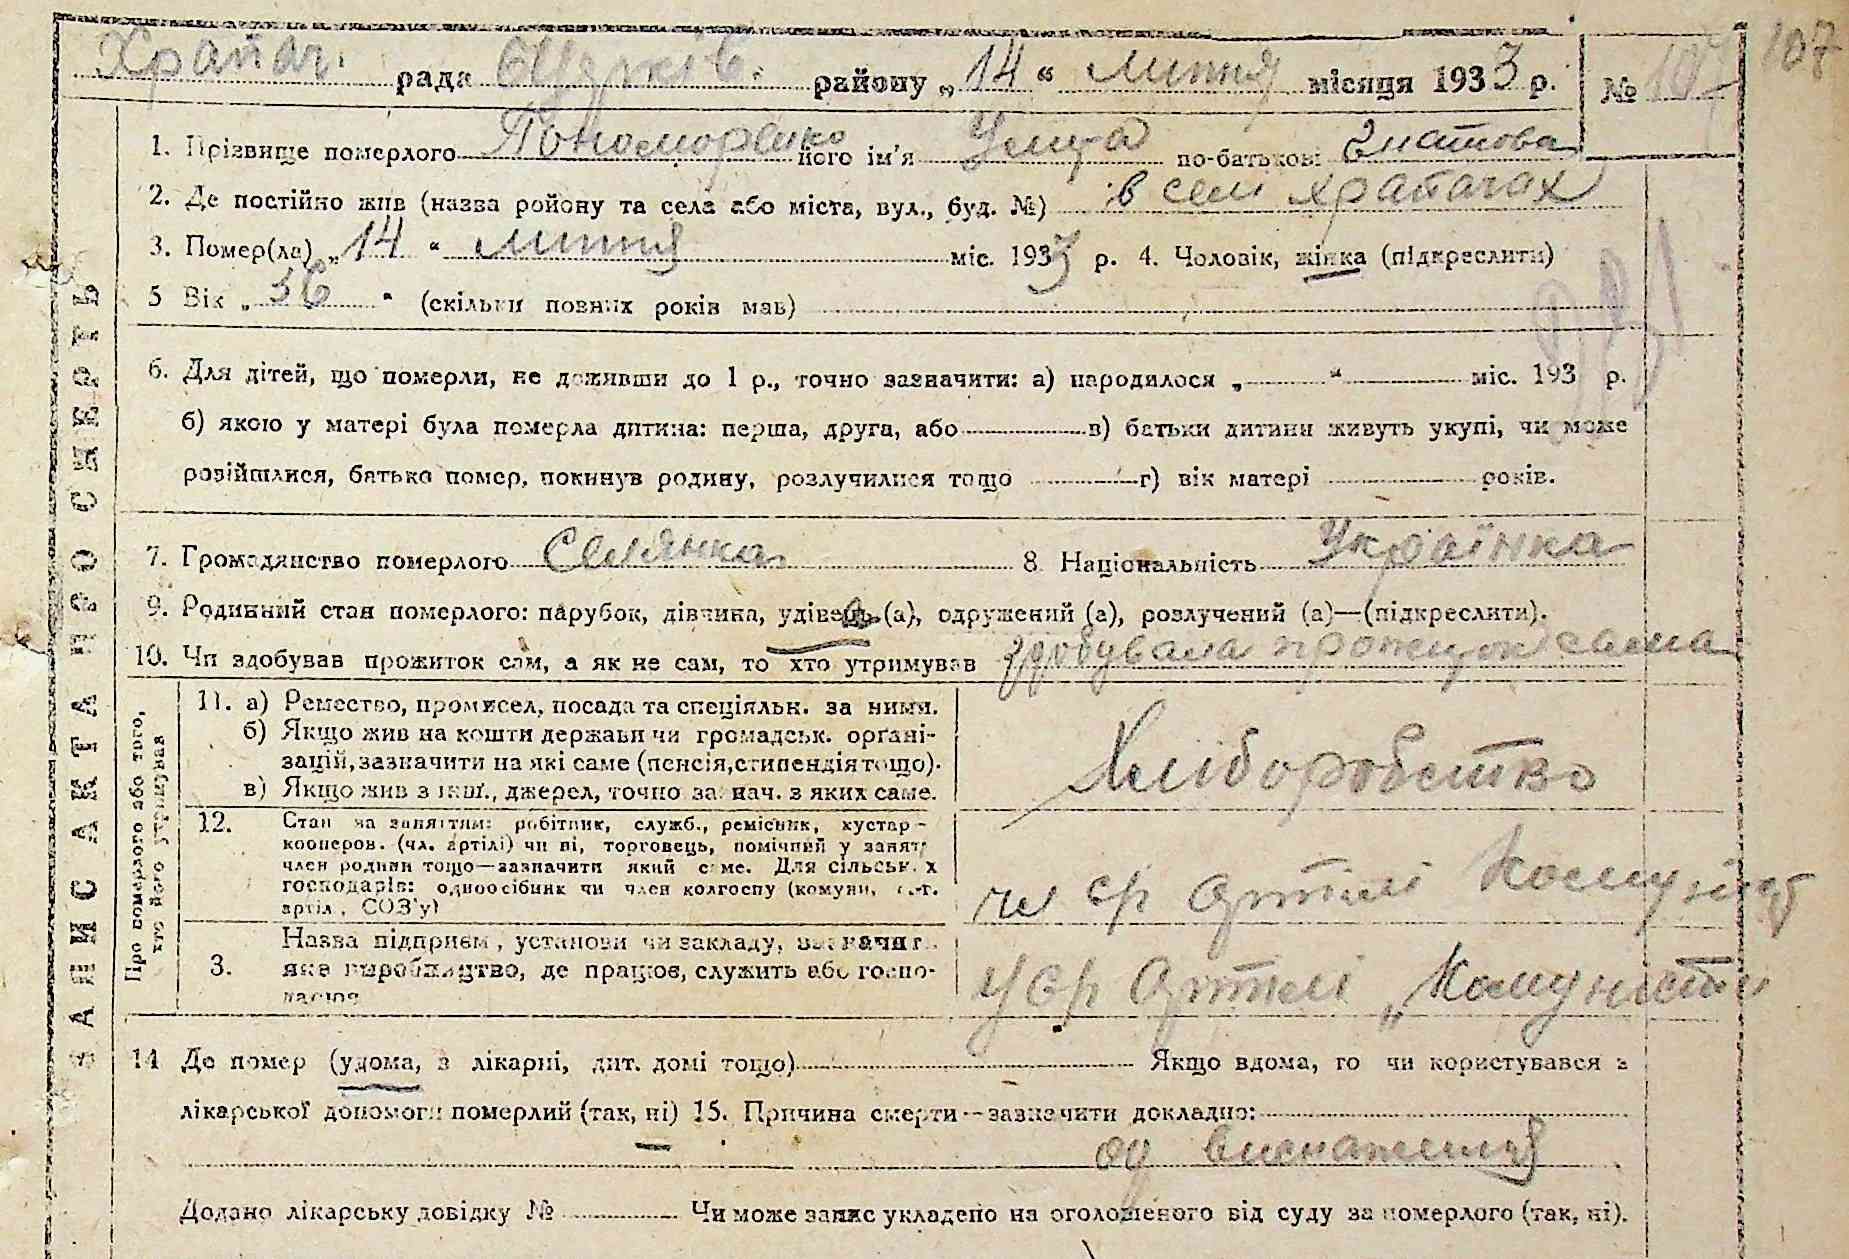 Храпач. рада району „14“ липня місяця 1933 р. № 107 107
1. Прізвище померлого Пономоренко його ім'я по-батькові Гнатова
2. Де постійно жив (назва ройону та села або міста, вул., буд. №) в селі Храпачах
3. Помер(ла) „14“ липня міс. 1933 р. 4. Чоловік, жінка (підкреслити)
5 Вік „56“ (скільки повних років мав)
6. Для дітей, що померли, не доживши до 1 р., точно зазначити: а) народилося „ “ міс. 193 р.
б) якою у матері була померла дитина: перша, друга, або в) батьки дитини живуть укупі, чи може
розійшлися, батько помер, покинув родину, розлучилися тощо г) вік матері років.
7. Громадянство померлого Селянка 8 Національність Українка
9. Родинний стан померлого: парубок, дівчина, удівець (а), одружений (а), розлучений (а)—(підкреслити).
10. Чи здобував прожиток сам, а як не сам, то хто утримував здобувала прожиток сама
ЗАПИС АКТА ПРО СМЕРТЬ
Про померлого або того,
хто його утримував
11. а) Ремество, промисел, посада та спеціяльн. за ними.
б) Якщо жив на кошти держави чи громадськ. органі-
зацій, зазначити на які саме (пенсія, стипендія тощо).
в) Якщо жив з інш., джерел, точно зазнач. з яких саме.
Хліборобство
12. Стан за заняттям: робітник, служб., ремісник, кустар-
кооперов. (чл. артілі) чи ні, торговець, помічний у занят.
член родини тощо—зазначити який саме. Для сільськ. х
господарів: одноосібник чи член колгоспу (комуни, с.-г.
артіл., СОЗ'у)
чл с/г артілі Комуніст
3. Назва підприєм., установи чи закладу, визначити
яке виробництво, де працює, служить або госпо-
дарює
у с/г артілі „Комуністи
14 Де помер (удома, в лікарні, дит. домі тощо) Якщо вдома, то чи користувався з
лікарської допомоги померлий (так, ні) 15. Причина смерти—зазначити докладно:
од виснаження
Додано лікарську довідку № Чи може запис укладено на оголошеного від суду за померлого (так, ні).